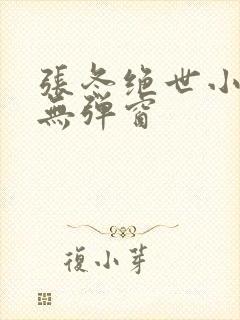 張冬绝世小
無弹窗
復小芽